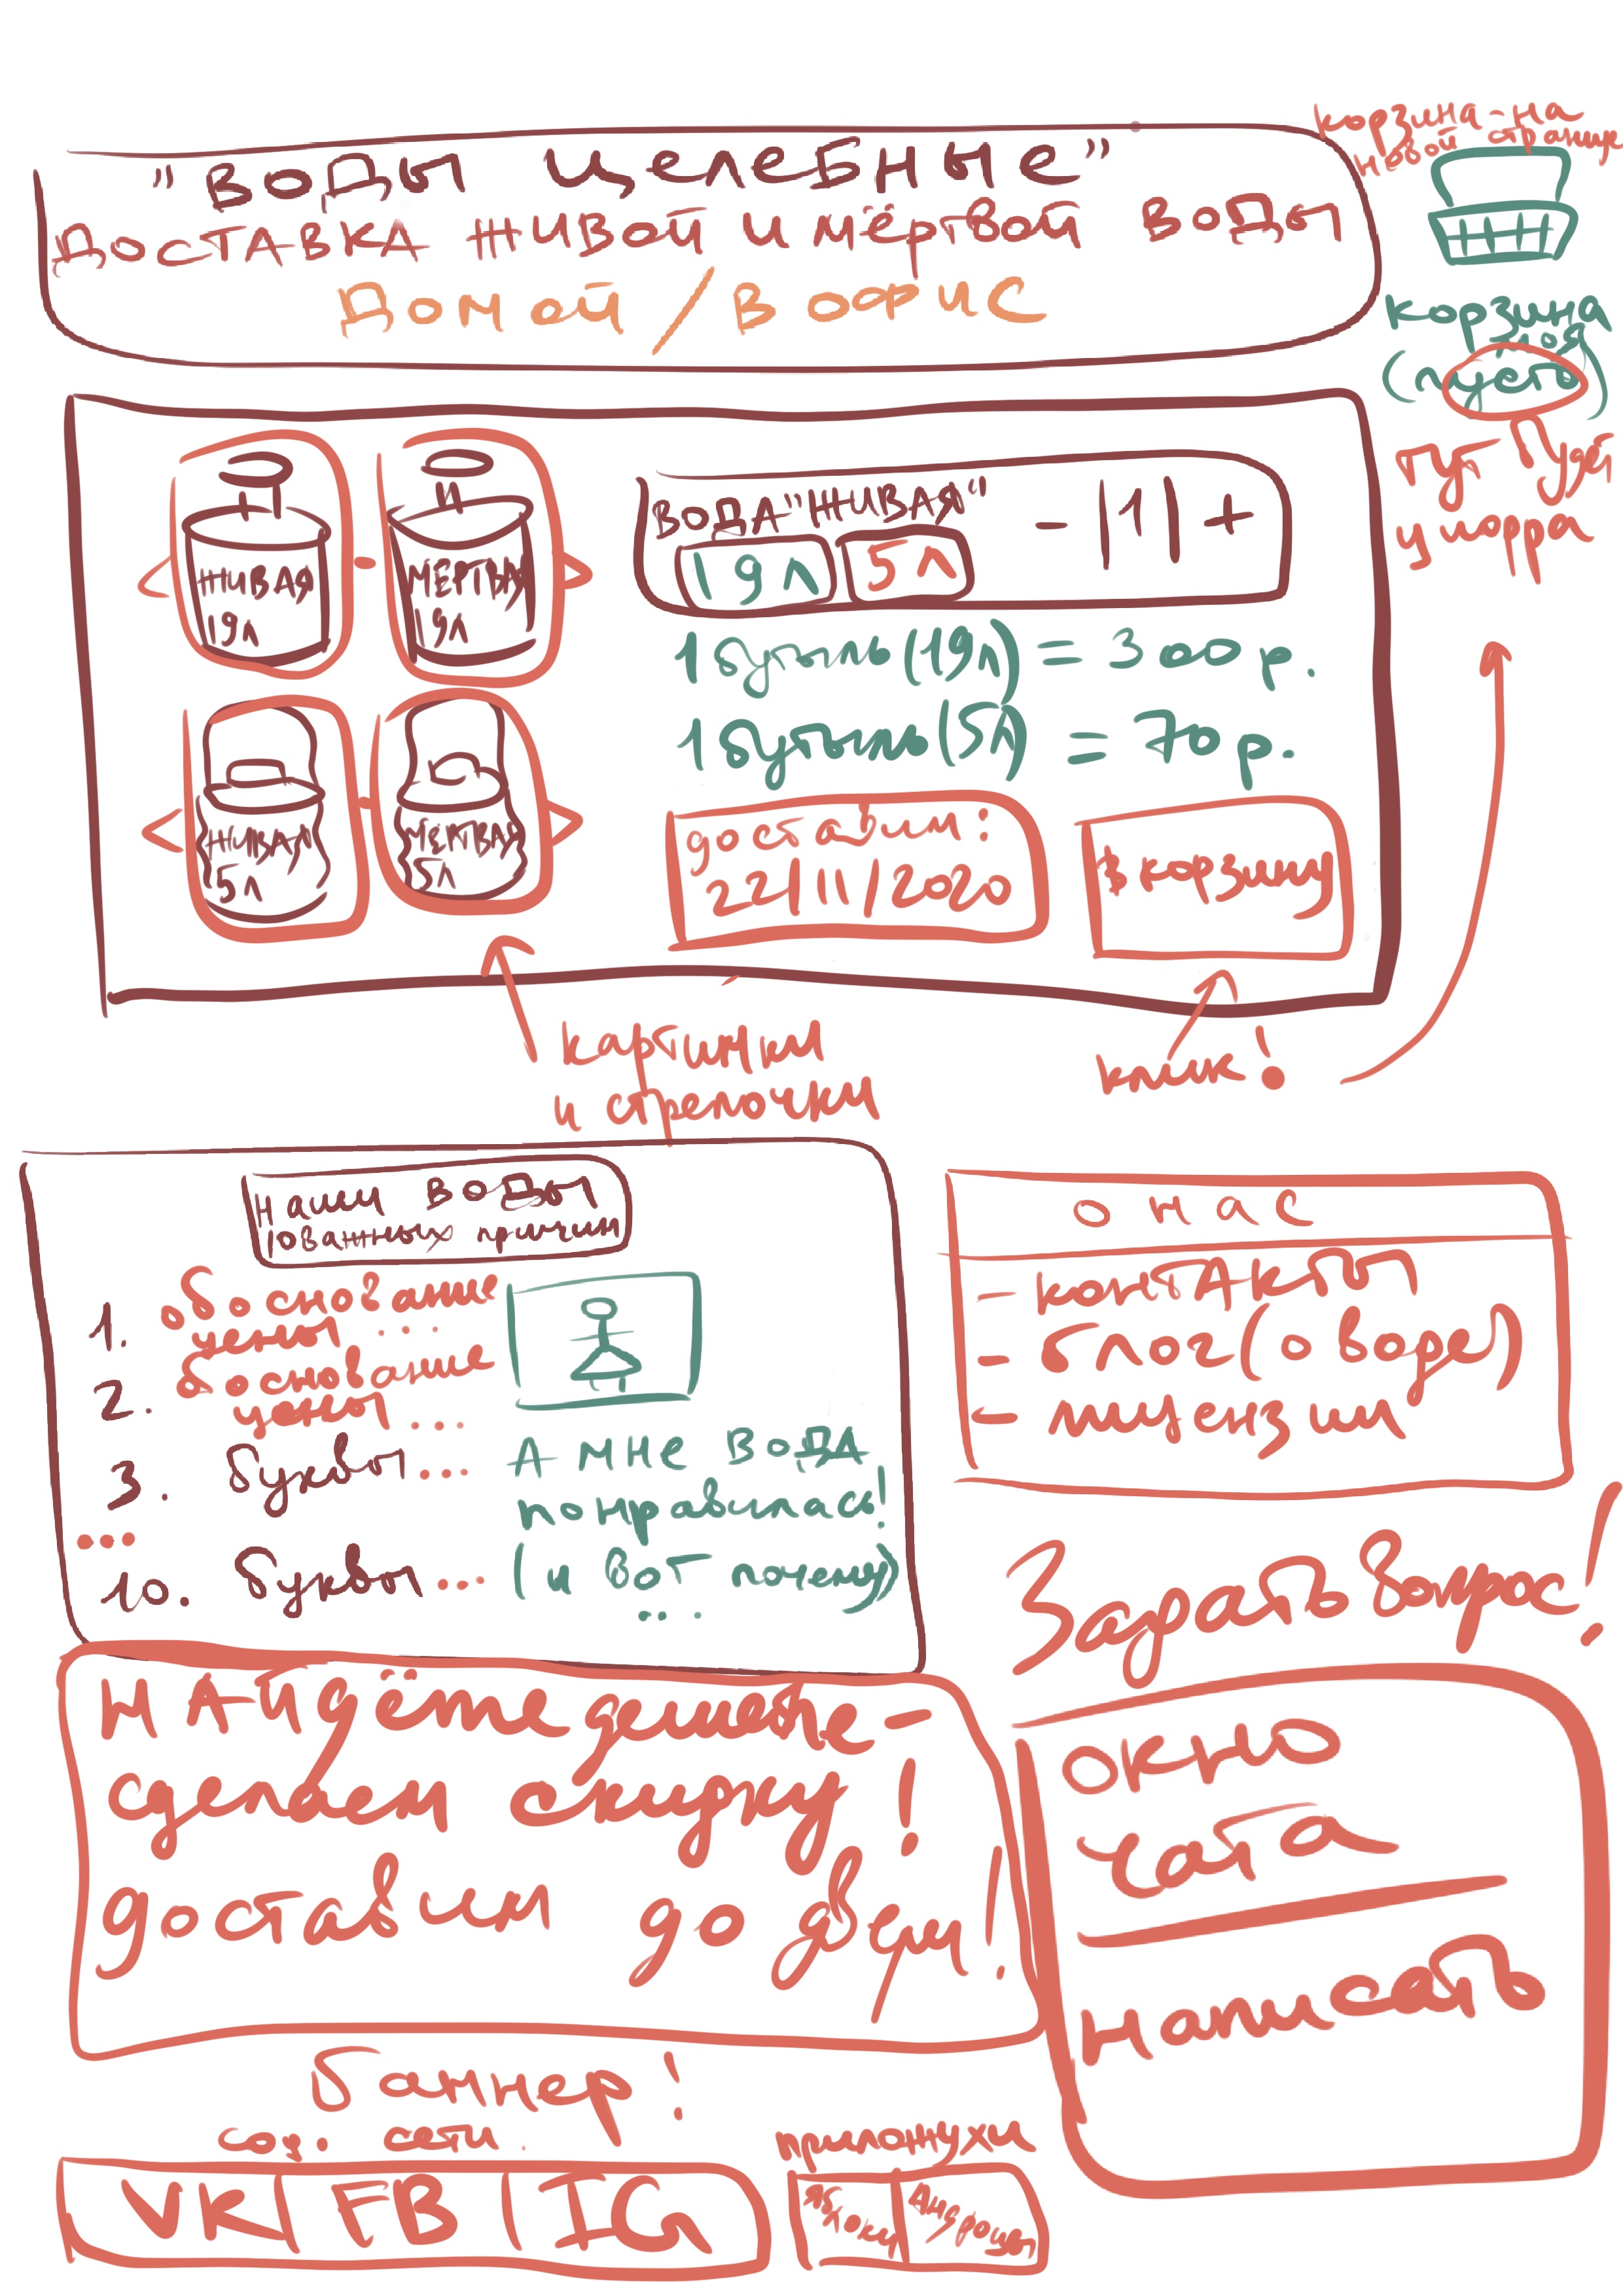 "ВОДЫ ЦЕЛЕБНЫЕ"
ДОСТАВКА ЖИВОЙ И МЁРТВОЙ ВОДЫ
ДОМОЙ / В ОФИС
корзина - на
новой странице
корзина
моя
(пусто)
тут будет
цифра
ЖИВАЯ
19л
МЁРТВАЯ
19л
ЖИВАЯ
5л
МЁРТВАЯ
5л
ВОДА "ЖИВАЯ" - |1| +
19л 5л
1 бутыль (19л) = 300 р.
1 бутыль (5л) = 70 р.
доставим:
22/11/2020
в корзину
картинки
и стрелочки
клик!
Наши ВОДЫ
10 важных причин
1. обоснование
цены ...
2. обоснование
цены ...
3. буквы ...
...
10. буквы ...
А МНЕ ВОДА
понравилась!
(и вот почему)
...
О НАС
- контАКты
- блог (о воде)
- лицензии
Задать вопрос!
окно
чата
написать
НАйдёте дешевле -
сделаем скидку!
доставим до двери!
баннер!
соц. сети
VK FB IG
приложухи
яблоки
Андроиды